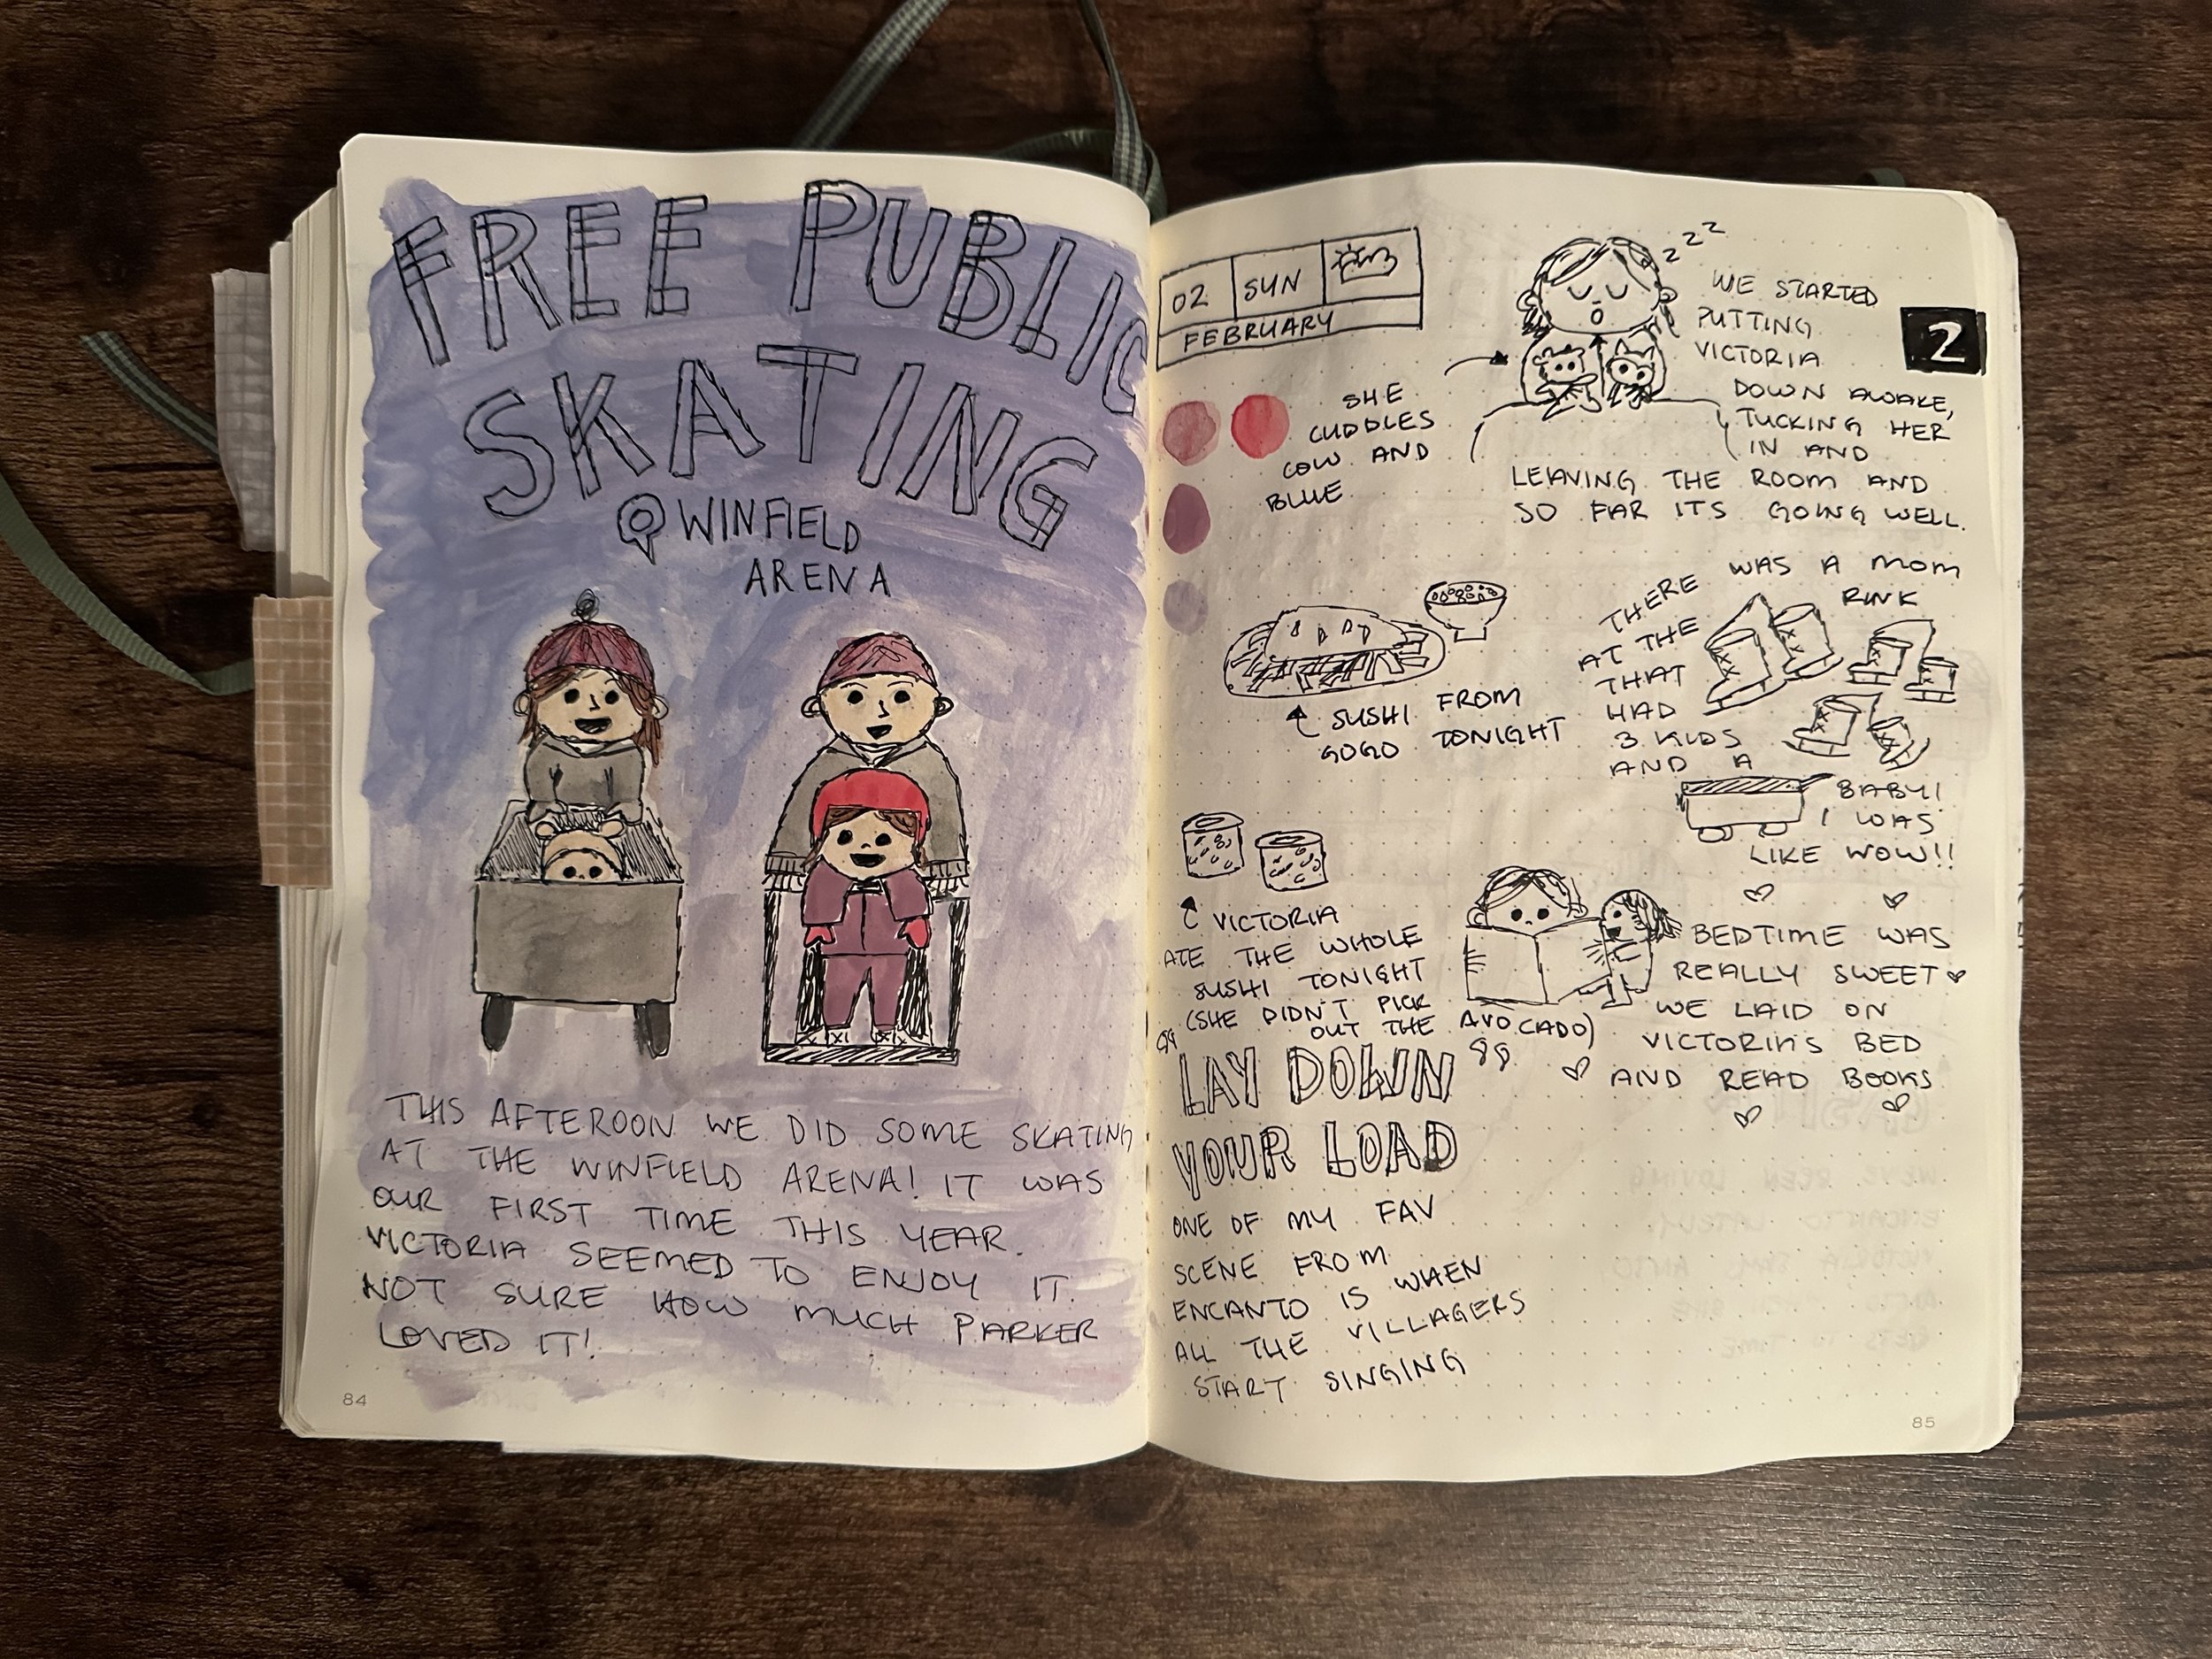 FREE PUBLIC
SKATING
@ WINFIELD
ARENA
THIS AFTEROON WE DID SOME SKATING
AT THE WINFIELD ARENA! IT WAS
OUR FIRST TIME THIS YEAR.
VICTORIA SEEMED TO ENJOY IT.
NOT SURE HOW MUCH PARKER
LOVED IT!
84
02 SUN
FEBRUARY
zzz
WE STARTED
PUTTING
VICTORIA
DOWN AWAKE,
TUCKING HER
IN AND
LEAVING THE ROOM AND
SO FAR ITS GOING WELL.
2
SHE
CUDDLES
COW AND
BLUE
SUSHI FROM
GOGO TONIGHT
THERE WAS A MOM
AT THE RINK
THAT
HAD
3 KIDS
AND A
BABY!
I WAS
LIKE WOW!!
VICTORIA
ATE THE WHOLE
SUSHI TONIGHT
(SHE DIDN'T PICK
OUT THE AVOCADO)
BEDTIME WAS
REALLY SWEET
WE LAID ON
VICTORIA'S BED
AND READ BOOKS
LAY DOWN
YOUR LOAD
ONE OF MY FAV
SCENE FROM
ENCANTO IS WHEN
ALL THE VILLAGERS
START SINGING
85